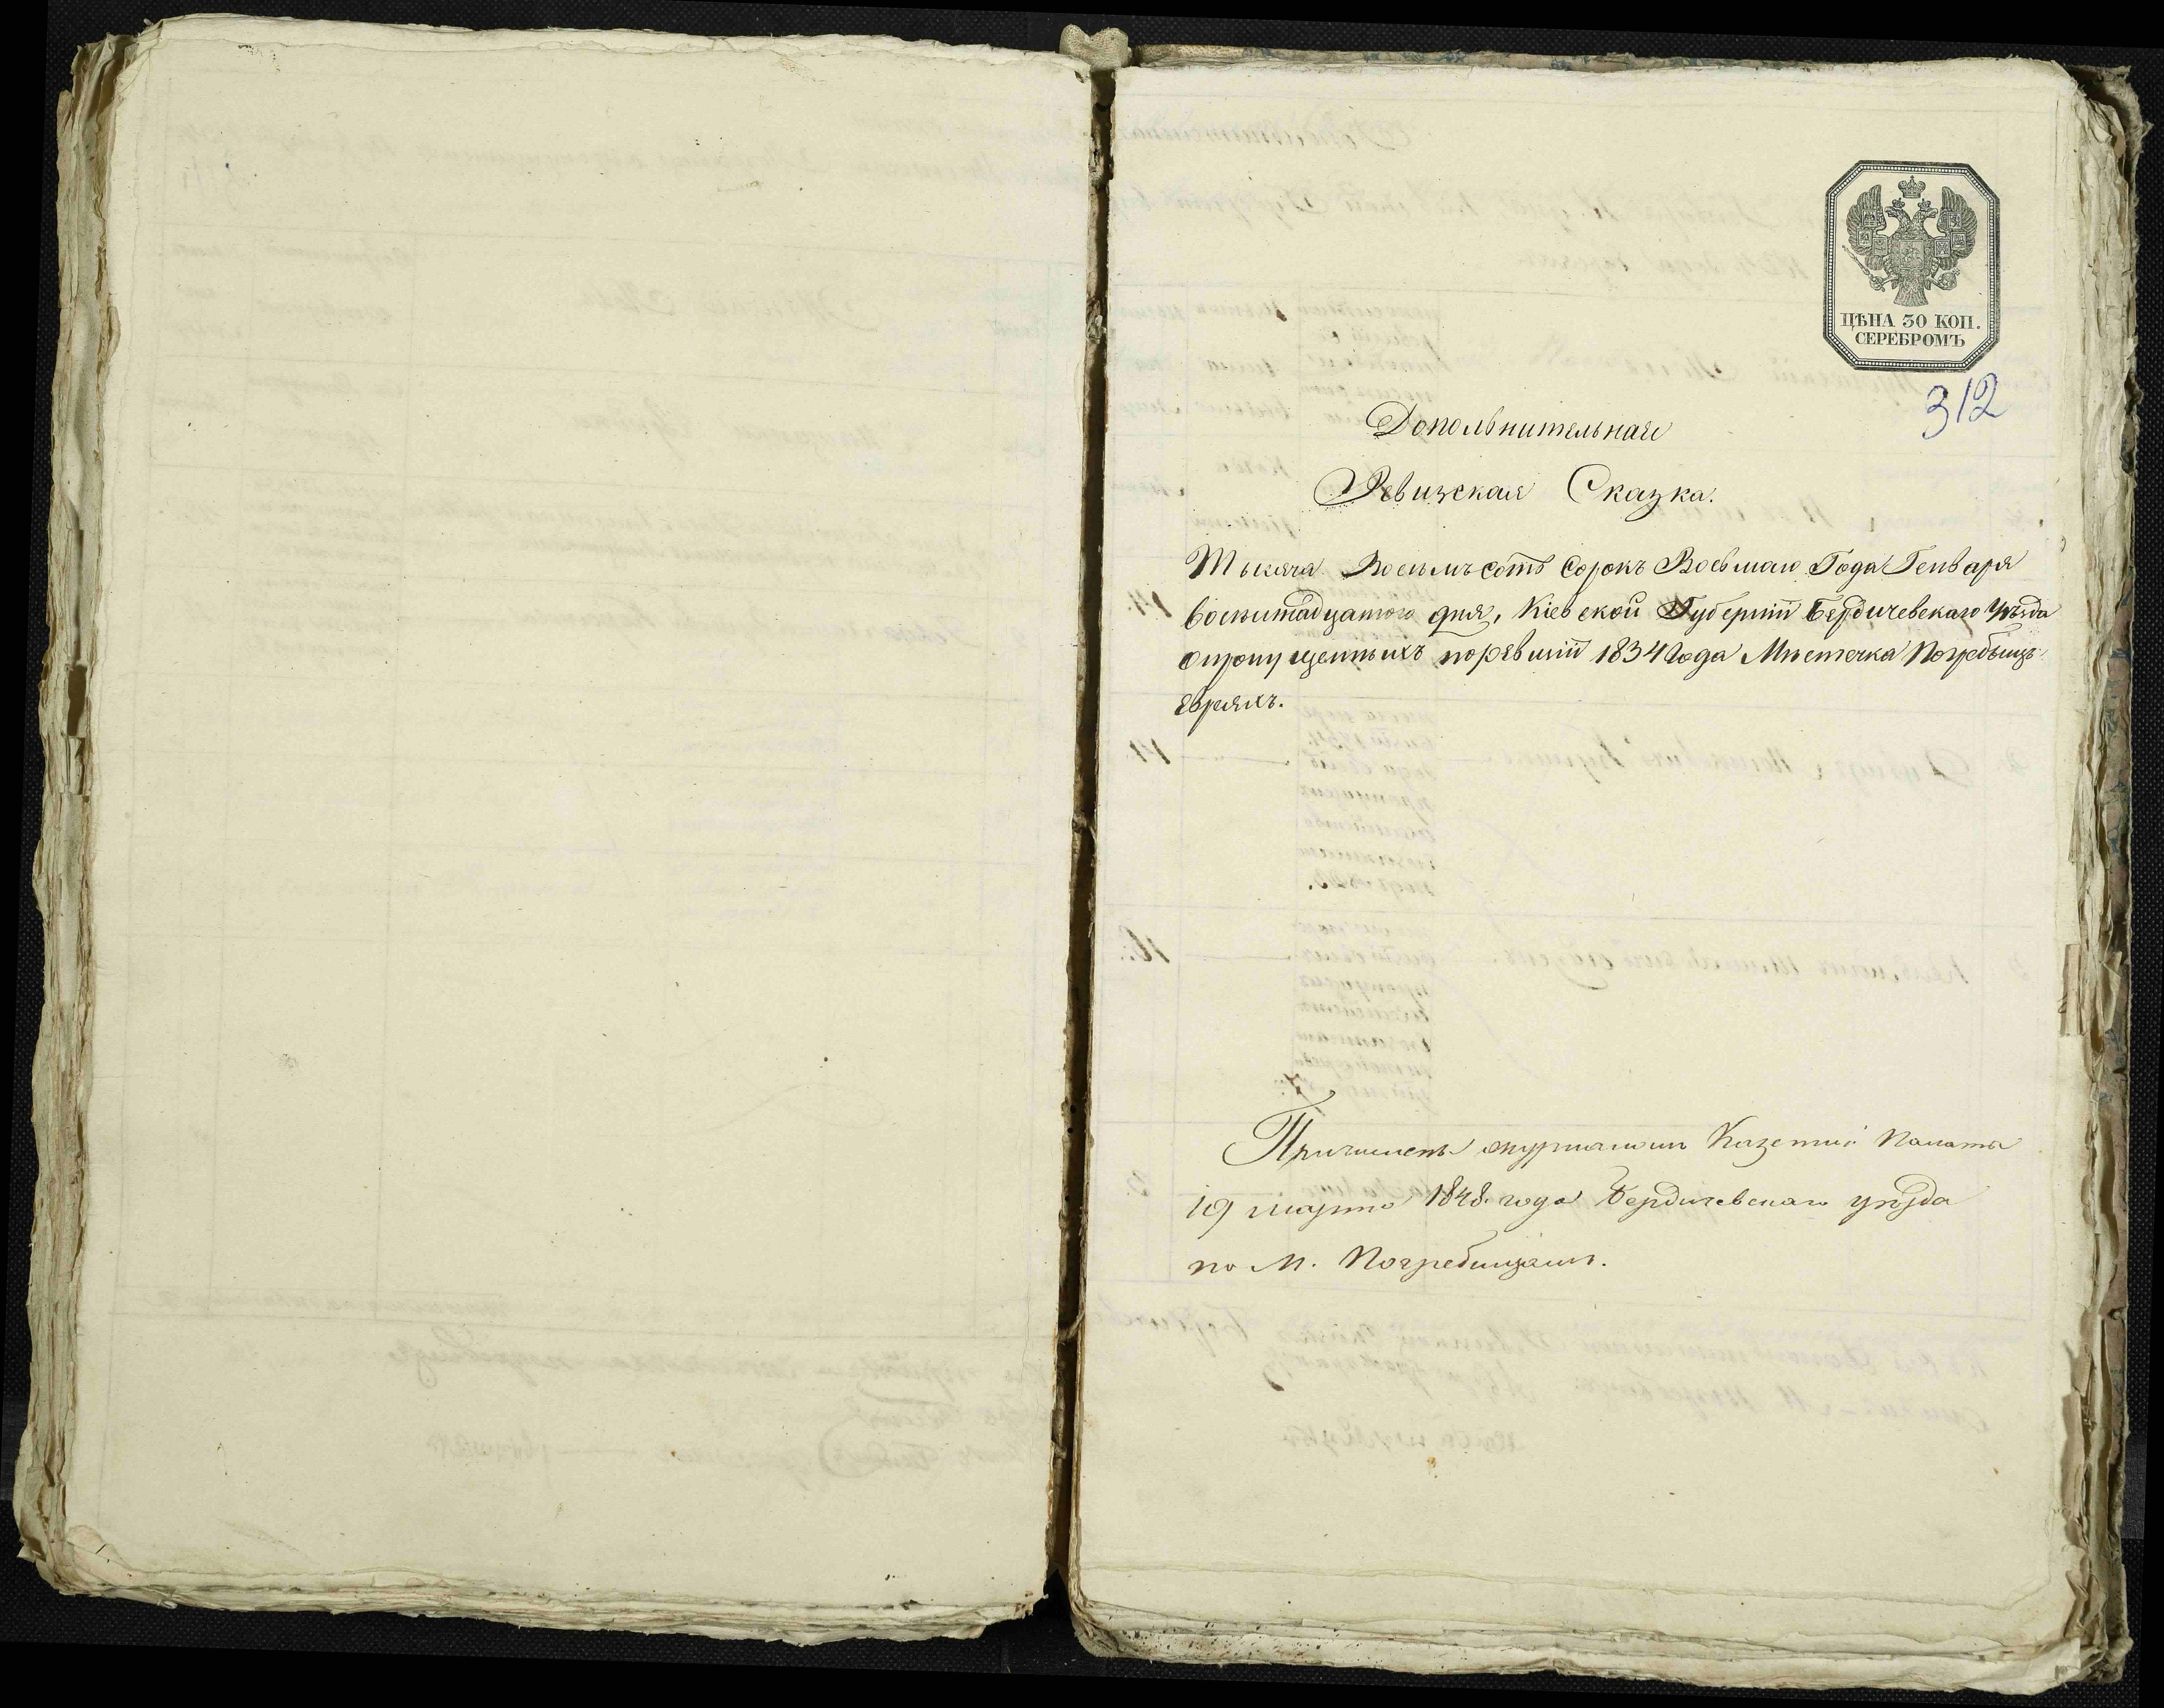 ЦѢНА 30 КОП.
СЕРЕБРОМЪ
312
Дополнительная
Ревизская Сказка.
Тысяча Восемъсотъ Сорокъ Восьмаго Года Генваря
восемнадцатого дня, Кіевской Губерніи Бердичевскаго Уѣзда
о пропущенныхъ поревизіи 1834 года Мѣстечка Погребыщъ
евреяхъ.
Причислены журналомъ Казенной Палаты
19 марта 1848. года Бердичевскаго уѣзда
по М. Погребищамъ.